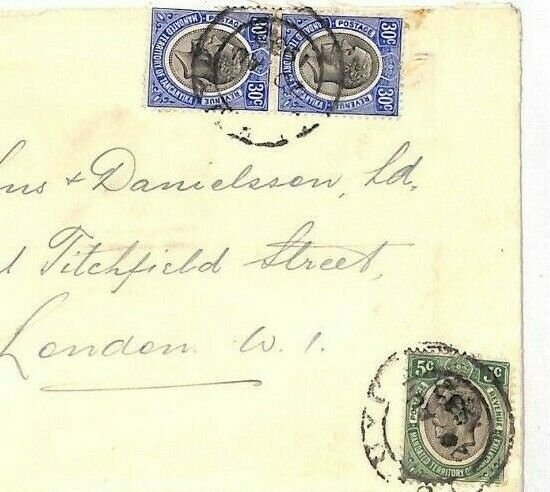 30c POSTAGE 30c
MANDATED TERRITORY OF TANGANYIKA
REVENUE
30c POSTAGE 30c
MANDATED TERRITORY OF TANGANYIKA
REVENUE
ns & Danielsson, Ld.
Titchfield Street,
London W.1.
5c 5c
POSTAGE REVENUE
MANDATED TERRITORY OF TANGANYIKA